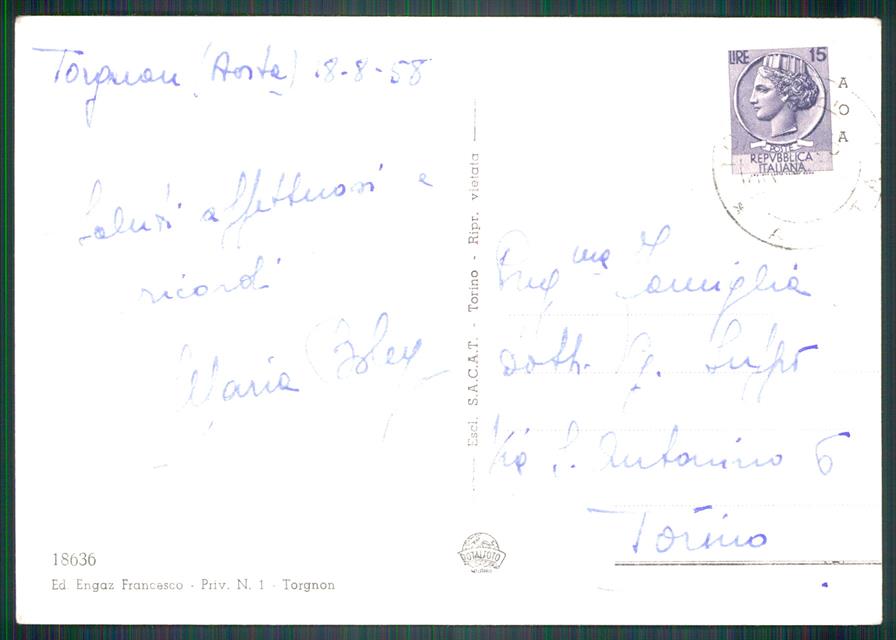 Torgnon (Aosta) 18-8-58
Saluti affettuosi e
ricordi
Maria
LIRE 15
POSTE
REPVBBLICA
ITALIANA
A
O
A
Famiglia
Dott. G.
Via S. Antonino 6
Torino
Escl. S.A.C.A.T. - Torino - Ripr. vietata
ROTALFOTO
MILANO
18636
Ed. Engaz Francesco - Priv. N. 1 - Torgnon